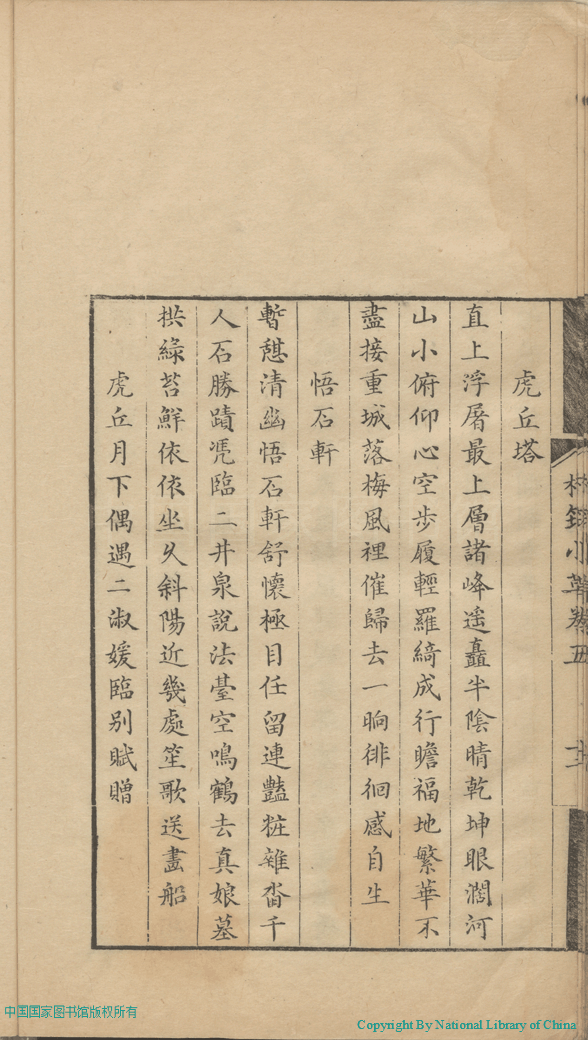 虎丘塔
直上浮屠最上層諸峰遥矗半陰晴乾坤眼濶河
山小俯仰心空步履輕羅綺成行瞻福地繁華不
盡接重城落梅風裡催歸去一晌徘徊感自生
悟石軒
暫憇清幽悟石軒舒懷極目任留連豔粧雜沓千
人石勝蹟凴臨二井泉說法臺空鳴鶴去真娘墓
拱綠苔鮮依依坐久斜陽近幾處笙歌送畫船
虎丘月下偶遇二淑媛臨别賦贈
小草卷五
中国国家图书馆版权所有
Copyright By National Library of China